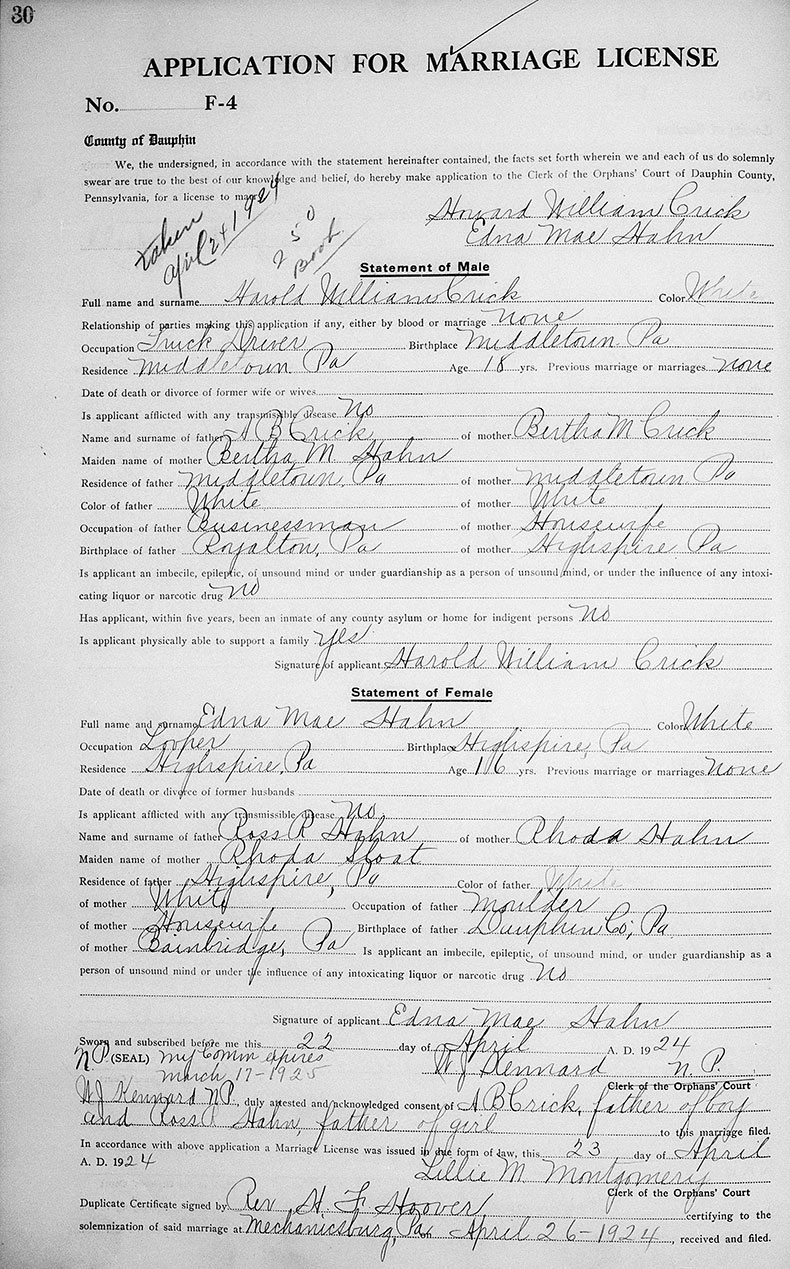 30
APPLICATION FOR MARRIAGE LICENSE
No. F-4
County of Dauphin
We, the undersigned, in accordance with the statement hereinafter contained, the facts set forth wherein we and each of us do solemnly
swear are true to the best of our knowledge and belief, do hereby make application to the Clerk of the Orphans' Court of Dauphin County,
Pennsylvania, for a license to marry
Howard William Crick
Edna Mae Hahn
taken
April 24 1924
250
Book
Statement of Male
Full name and surname Harold William Crick Color White
Relationship of parties making this application if any, either by blood or marriage none
Occupation Truck Driver Birthplace Middletown Pa
Residence Middletown Pa Age 18 yrs. Previous marriage or marriages none
Date of death or divorce of former wife or wives
Is applicant afflicted with any transmissible disease No
Name and surname of father A B Crick of mother Bertha M Crick
Maiden name of mother Bertha M Hahn
Residence of father Middletown, Pa of mother Middletown Pa
Color of father White of mother White
Occupation of father Businessman of mother Housewife
Birthplace of father Royalton, Pa of mother Highspire Pa
Is applicant an imbecile, epileptic, of unsound mind or under guardianship as a person of unsound mind, or under the influence of any intoxi-
cating liquor or narcotic drug no
Has applicant, within five years, been an inmate of any county asylum or home for indigent persons no
Is applicant physically able to support a family yes
Signature of applicant Harold William Crick
Statement of Female
Full name and surname Edna Mae Hahn Color White
Occupation Looper Birthplace Highspire, Pa
Residence Highspire, Pa Age 16 yrs. Previous marriage or marriages none
Date of death or divorce of former husbands
Is applicant afflicted with any transmissible disease No
Name and surname of father Ross R Hahn of mother Rhoda Hahn
Maiden name of mother Rhoda Sloat
Residence of father Highspire, Pa Color of father White
of mother White Occupation of father Moulder
of mother Housewife Birthplace of father Dauphin Co; Pa
of mother Bainbridge, Pa Is applicant an imbecile, epileptic, of unsound mind, or under guardianship as a
person of unsound mind or under the influence of any intoxicating liquor or narcotic drug no
Signature of applicant Edna Mae Hahn
Sworn and subscribed before me this 22 day of April A. D. 1924
N.P. (SEAL) my Comm expires W J Kennard N.P.
March 17-1925 Clerk of the Orphans' Court
W J Kennard N.P., duly attested and acknowledged consent of A B Crick, father of boy
and Ross R Hahn, father of girl to this marriage filed.
In accordance with above application a Marriage License was issued in due form of law, this 23 day of April
A. D. 1924 Lillie M. Montgomery
Clerk of the Orphans' Court
Duplicate Certificate signed by Rev H. F. Hoover certifying to the
solemnization of said marriage at Mechanicsburg, Pa on April 26-1924, received and filed.